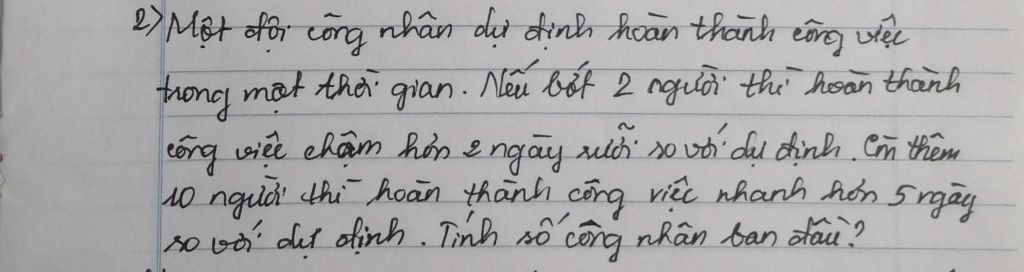 2) Một đội công nhân dự định hoàn thành công việc
trong một thời gian. Nếu bớt 2 người thì hoàn thành
công việc chậm hơn 2 ngày rưỡi so với dự định. Còn thêm
10 người thì hoàn thành công việc nhanh hơn 5 ngày
so với dự định. Tính số công nhân ban đầu?